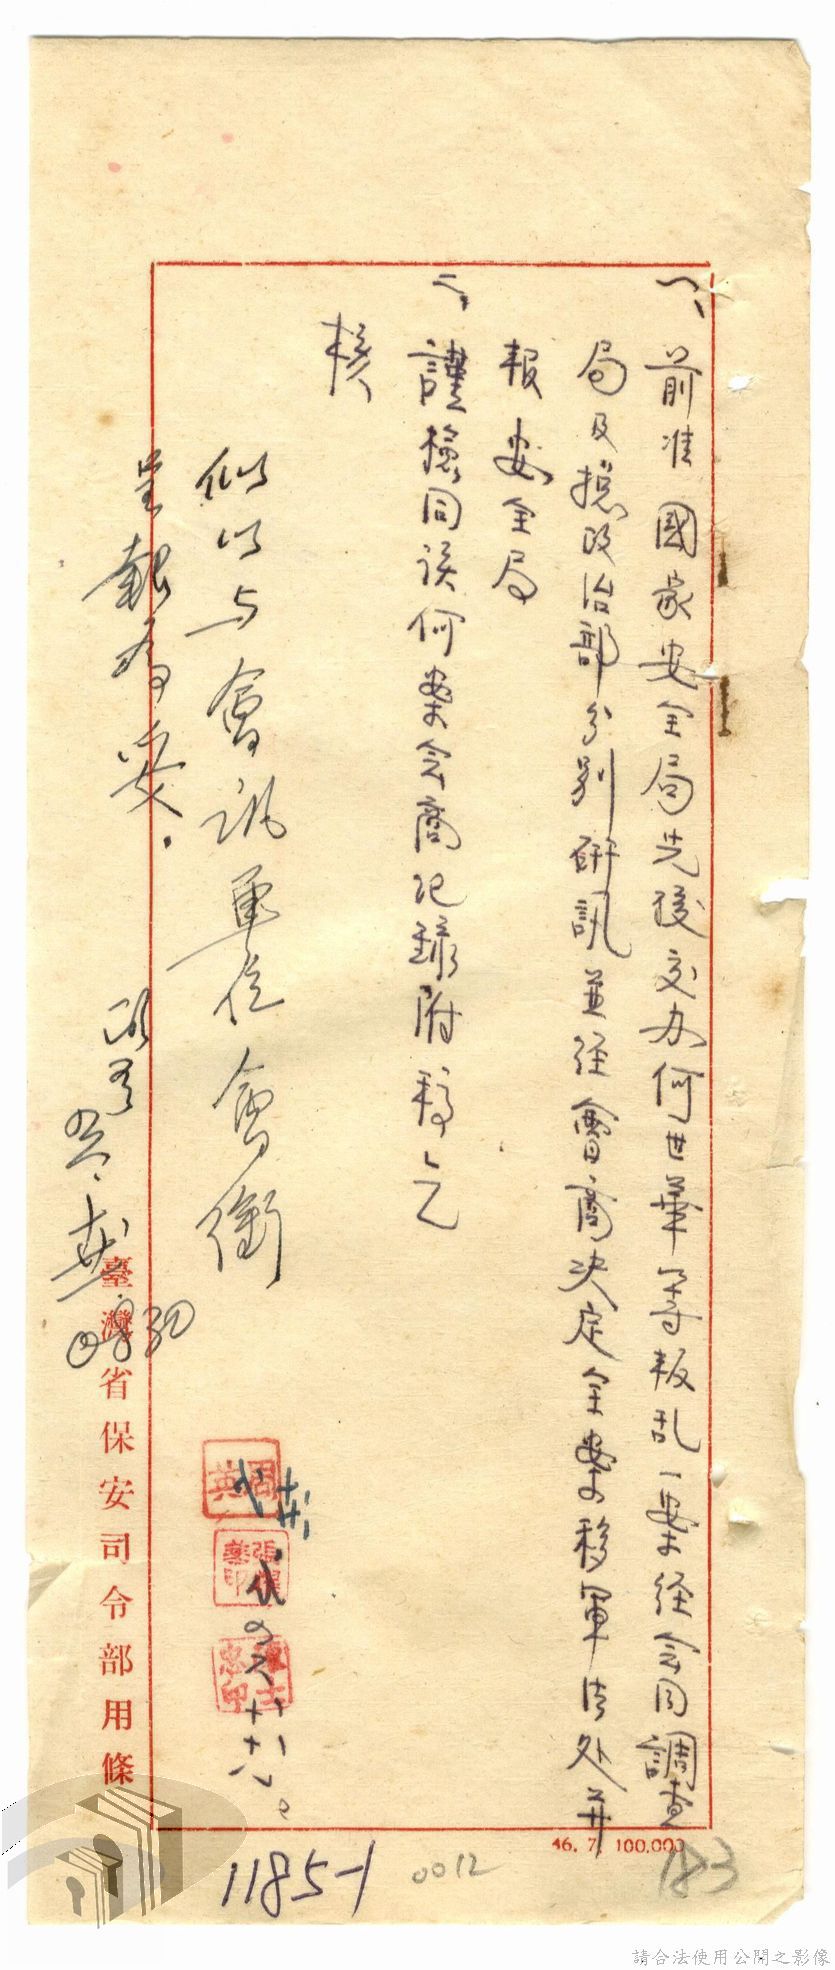 一、前准國家安全局先後交办何世華等叛乱一案経会同調查
局及總政治部分别研訊並经會商决定全案移軍法处并
報安全局
二、謹檢同该何案会商记録附稿乞
核
似以与會訊單位會銜
呈報為妥.
臺灣省保安司令部用條
46. 7. 100.000
11851
0012
183
請合法使用公開之影像